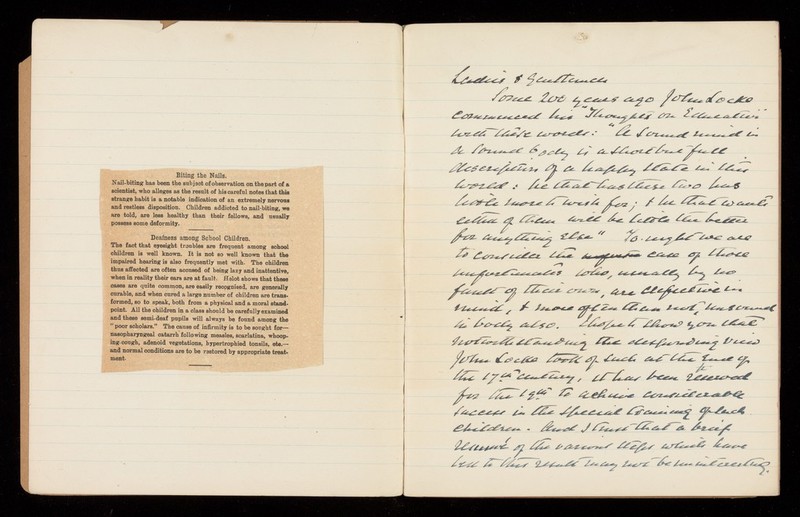 Biting the Nails.
Nail-biting has been the subject of observation on the part of a
scientist, who alleges as the result of his careful notes that this
strange habit is a notable indication of an extremely nervous
and restless disposition. Children addicted to nail-biting, we
are told, are less healthy than their fellows, and usually
possess some deformity.
Deafness among School Children.
The fact that eyesight troubles are frequent among school
children is well known. It is not so well known that the
impaired hearing is also frequently met with. The children
thus affected are often accused of being lazy and inattentive,
when in reality their ears are at fault. Helot shows that these
cases are quite common, are easily recognised, are generally
curable, and when cured a large number of children are trans-
formed, so to speak, both from a physical and a moral stand-
point. All the children in a class should be carefully examined
and these semi-deaf pupils will always be found among the
"poor scholars." The cause of infirmity is to be sought for—
nasopharyngeal catarrh following measles, scarlatina, whoop-
ing-cough, adenoid vegetations, hypertrophied tonsils, etc.—
and normal conditions are to be restored by appropriate treat-
ment.
Ladies & Gentlemen
Some 200 years ago John Locke
commenced his "Thoughts on Education"
with these words: "A Sound mind in
a Sound body is a short but full
description of a happy state in this
world: he that has these two has
little more to wish for; & he that wants
either of them will be little the better
for anything else" To-night we are
to consider the case of those
unfortunates who, usually by no
fault of their own, are defective in
mind, & more often than not, unsound
in body also. I hope to show you that
notwithstanding the desponding view
John Locke took of such at the end of
the 17th century, it has been reserved
for the 19th to achieve considerable
success in the special training of such
children. And I trust that a brief
resumé of the various steps which have
led to this result may not be uninteresting.